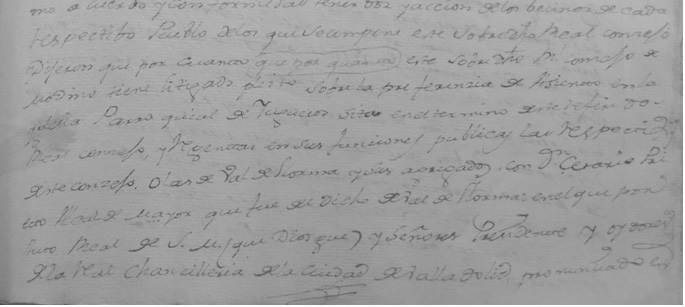 mo acuerdo y conformidad tener voz y accion de los vecinos de cada
respectibo Pueblo de los que se compone este sobre dho Real conzejo
Dijeron que por cuanto que por quanto este sobre dho Rl. Conzejo de
tiene litigado pleito sobre la preferenzia de Asiento en la
Yglesia Parroquial de sita en el termino de este referido
Real conzejo, y Regencia en sus funciones publicas las respectibas
de este conzejo, o las de Val de Lorma con Dn Cesario
Alcalde mayor que fue de dicho Val de Lorma: en el que por
Real de S. M. (que Dios gue) y Señores Presidente y oydores
de la Real Chancilleria de la Ciudad de Valladolid, pronunciado en